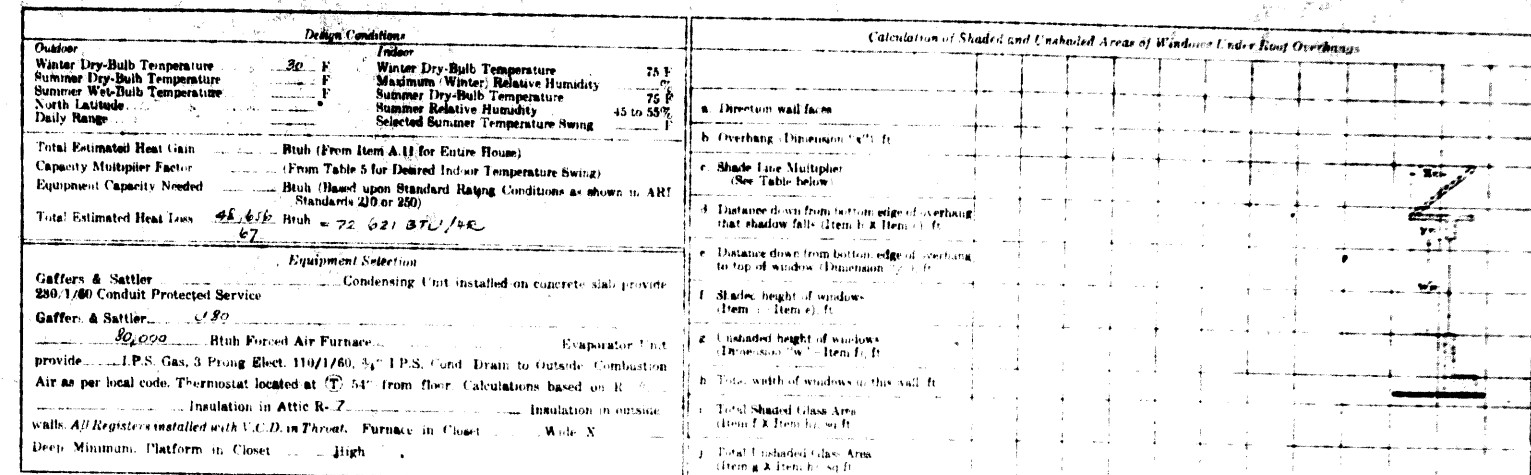 Design Conditions
Outdoor Indoor
Winter Dry-Bulb Temperature 30 F Winter Dry-Bulb Temperature 75 F
Summer Dry-Bulb Temperature F Maximum (Winter) Relative Humidity %
Summer Wet-Bulb Temperature F Summer Dry-Bulb Temperature 75 F
North Latitude ° Summer Relative Humidity 45 to 55%
Daily Range Selected Summer Temperature Swing F
Total Estimated Heat Gain Btuh (From Item A.11 for Entire House)
Capacity Multiplier Factor (From Table 5 for Desired Indoor Temperature Swing)
Equipment Capacity Needed Btuh (Based upon Standard Rating Conditions as shown in ARI
Standards 210 or 250)
Total Estimated Heat Loss 48,656 Btuh = 72 621 BTU/HR
67
Equipment Selection
Gaffers & Sattler Condensing Unit installed on concrete slab provide
230/1/60 Conduit Protected Service
Gaffers & Sattler
80,000 Btuh Forced Air Furnace Evaporator Unit
provide I.P.S. Gas, 3 Prong Elect. 110/1/60, ¾" I.P.S. Cond. Drain to Outside Combustion
Air as per local code. Thermostat located at (T) 54" from floor. Calculations based on R
Insulation in Attic R-7 Insulation in outside
walls. All Registers installed with V.C.D. in Throat. Furnace in Closet Wide X
Deep Minimum. Platform in Closet High
Calculation of Shaded and Unshaded Areas of Windows Under Roof Overhangs
a Direction wall faces
b Overhang (Dimension "x") ft
c Shade Line Multiplier
(See Table below)
d Distance down from bottom edge of overhang
that shadow falls (Item b X Item c), ft
e Distance down from bottom edge of overhang
to top of window (Dimension "y"), ft
f Shaded height of windows
(Item d - Item e), ft
g Unshaded height of windows
(Dimension "w" - Item f), ft
h Total width of windows in this wall, ft
i Total Shaded Glass Area
(Item f X Item h), sq ft
j Total Unshaded Glass Area
(Item g X Item h), sq ft